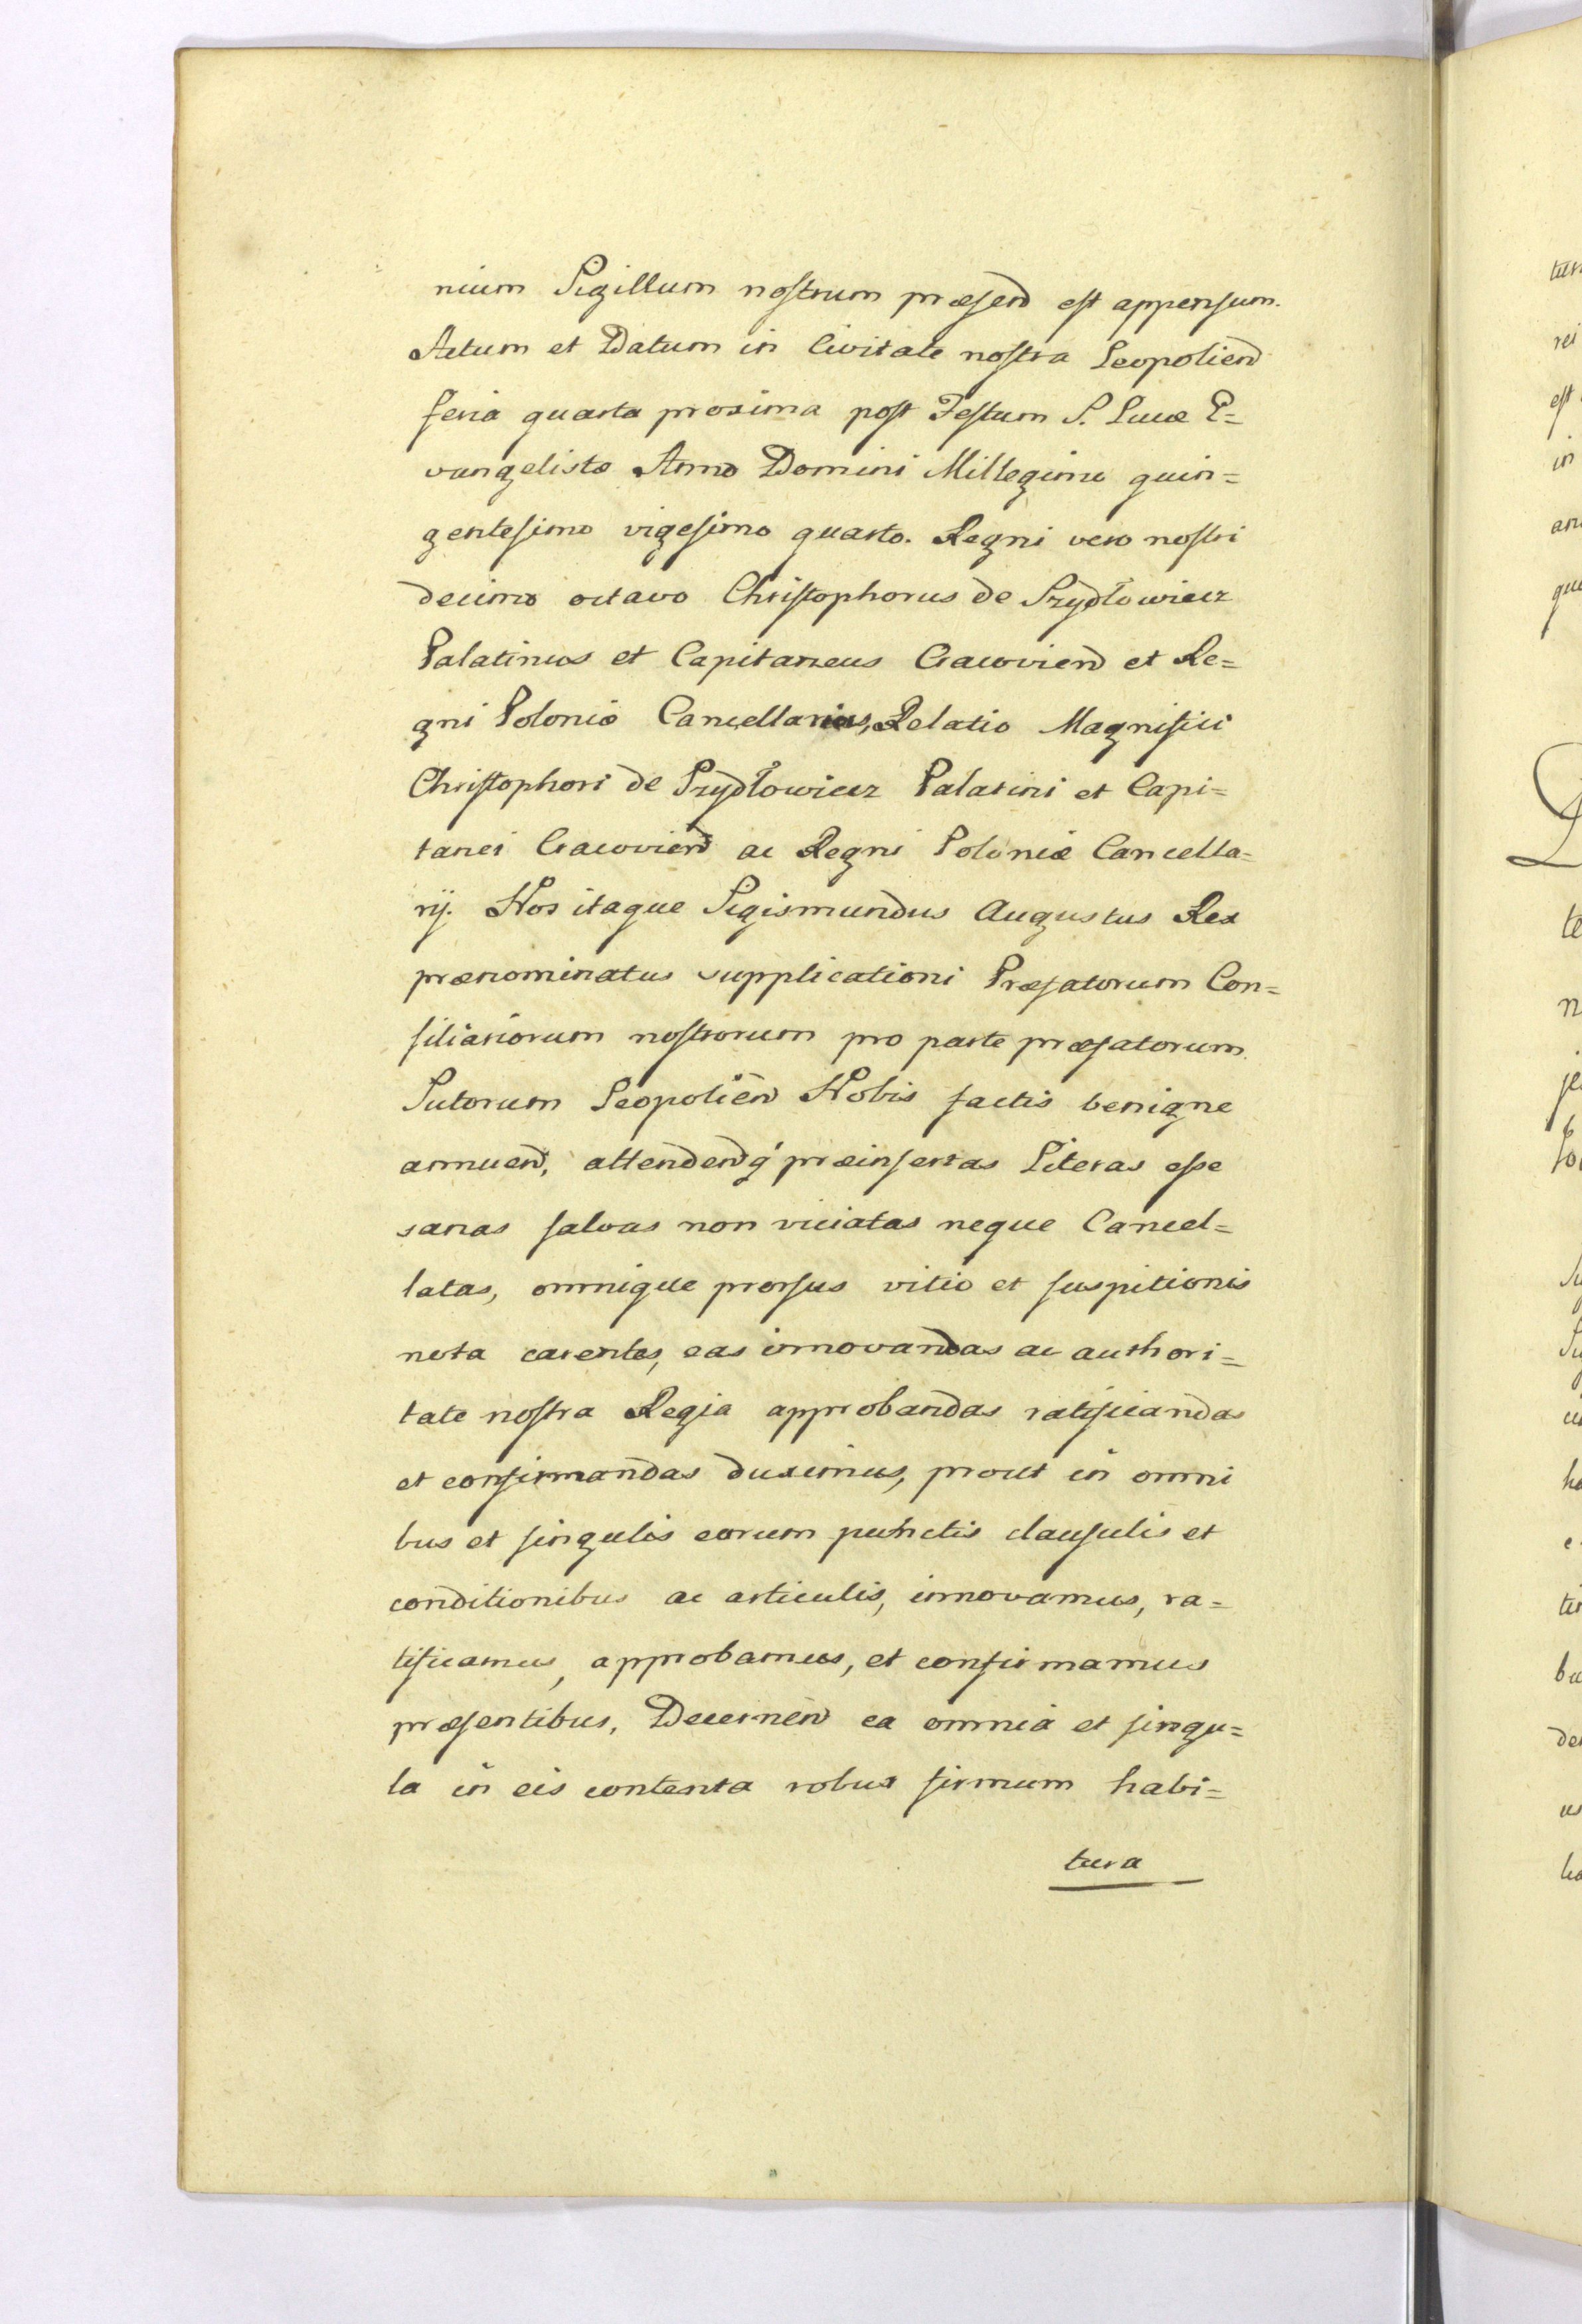 nium Sigillum nostrum præsen̄ est appensum.
Actum et Datum in Civitate nostra Leopolien̄
feria quarta proxima post Festum S. Lucæ E=
vangelistæ Anno Domini Millesimo quin=
gentesimo vigesimo quarto. Regni vero nostri
decimo octavo Christophorus de Szydłowiecz
Palatinus et Capitaneus Cracovien̄ et Re=
gni Poloniæ Cancellarius, Relatio Magnifici
Christophori de Szydłowiecz Palatini et Capi=
tanei Cracovien̄ ac Regni Poloniæ Cancella=
rij. Nos itaque Sigismundus Augustus Rex
prænominatus supplicationi Præfatorum Con=
siliariorum nostrorum pro parte præfatorum
Sutorum Leopolien̄ Nobis factis benigne
annuen̄, attendenq́ præinsertas Literas esse
sanas salvas non viciatas neque Cancel=
latas, omnique prorsus vitio et suspitionis
nota carentes, eas innovandas ac authori=
tate nostra Regia approbandas ratificandas
et confirmandas duximus, prout in omni
bus et singulis earum punctis clausulis et
conditionibus ac articulis, innovamus, ra=
tificamus, approbamus, et confirmamus
præsentibus, Decernen̄ ea omnia et singu=
la in eis contenta robur firmum habi=
tura